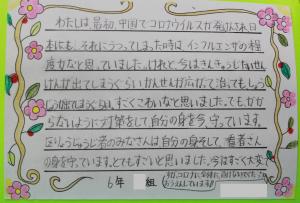 わたしは、最初、中国でコロナウイルスが発けんされ、日
本にも、それにうつってしまった時は、インフルエンザの程
度かなと思っていました。けれど、今はきんきゅうじたいせん
げんが出てしまうぐらいかんせんが広がって、治っても
出てしまうくらい、すごくこわいなと思いました。でも、かか
らないように対策をして、自分の身を今、守っています。
いりょうじゅうじ者のみなさんは自分の身そして、患者さん
の身を守っています。とてもすごいと思いました。今はすごく大変
6年 組
コロナに 負けないで
おうえんしています!